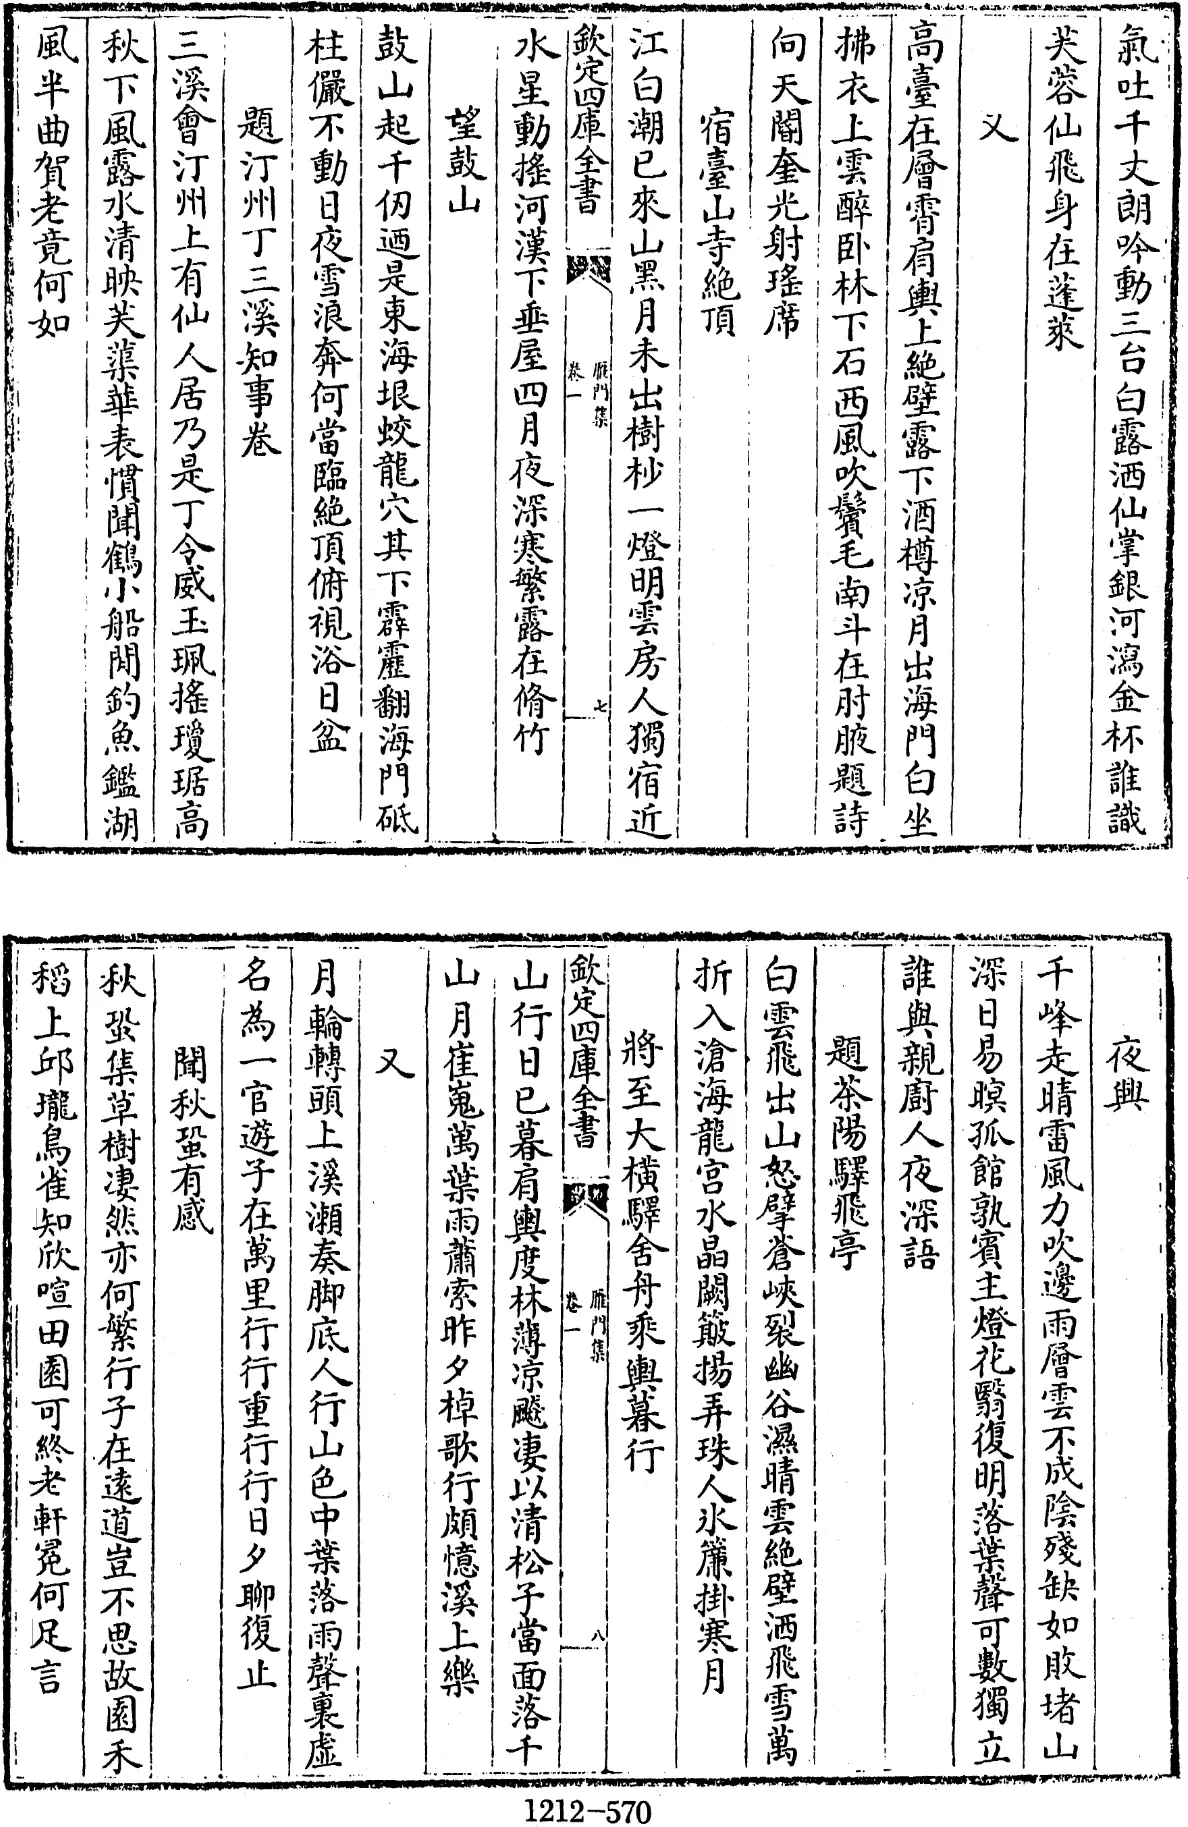 氣吐千丈朗吟動三台白露洒仙掌銀河瀉金杯誰識
芙蓉仙飛身在蓬萊
又
高臺在層霄肩輿上絶壁露下酒樽凉月出海門白坐
拂衣上雲醉卧林下石西風吹鬢毛南斗在肘腋題詩
向天閽奎光射瑤席
宿臺山寺絶頂
江白潮已來山黑月未出樹杪一燈明雲房人獨宿近
欽定四庫全書
雁門集
卷一
七
水星動搖河漢下垂屋四月夜深寒繁露在脩竹
望鼓山
鼓山起千仞迺是東海垠蛟龍穴其下霹靂翻海門砥
柱儼不動日夜雪浪奔何當臨絶頂俯視浴日盆
題汀州丁三溪知事卷
三溪會汀州上有仙人居乃是丁令威玉珮搖瓊琚高
秋下風露水清映芙蕖華表慣聞鶴小船閒釣魚鑑湖
風半曲賀老竟何如
夜興
千峰走晴雷風力吹邊雨層雲不成陰殘缺如敗堵山
深日易暝孤館孰賓主燈花翳復明落葉聲可數獨立
誰與親廚人夜深語
題茶陽驛飛亭
白雲飛出山怒擘蒼峽裂幽谷濕晴雲絶壁洒飛雪萬
折入滄海龍宫水晶闕簸揚弄珠人氷簾掛寒月
將至大橫驛舍舟乘輿暮行
欽定四庫全書
雁門集
卷一
八
山行日已暮肩輿度林薄凉飈凄以清松子當面落千
山月崔嵬萬葉雨蕭索昨夕棹歌行頗憶溪上樂
又
月輪轉頭上溪瀬奏脚底人行山色中葉落雨聲裏虛
名為一官遊子在萬里行行重行行日夕聊復止
聞秋蛩有感
秋蛩集草樹凄然亦何繁行子在遠道豈不思故園禾
稻上邱壠鳥雀知欣喧田園可終老軒冕何足言
1212-570